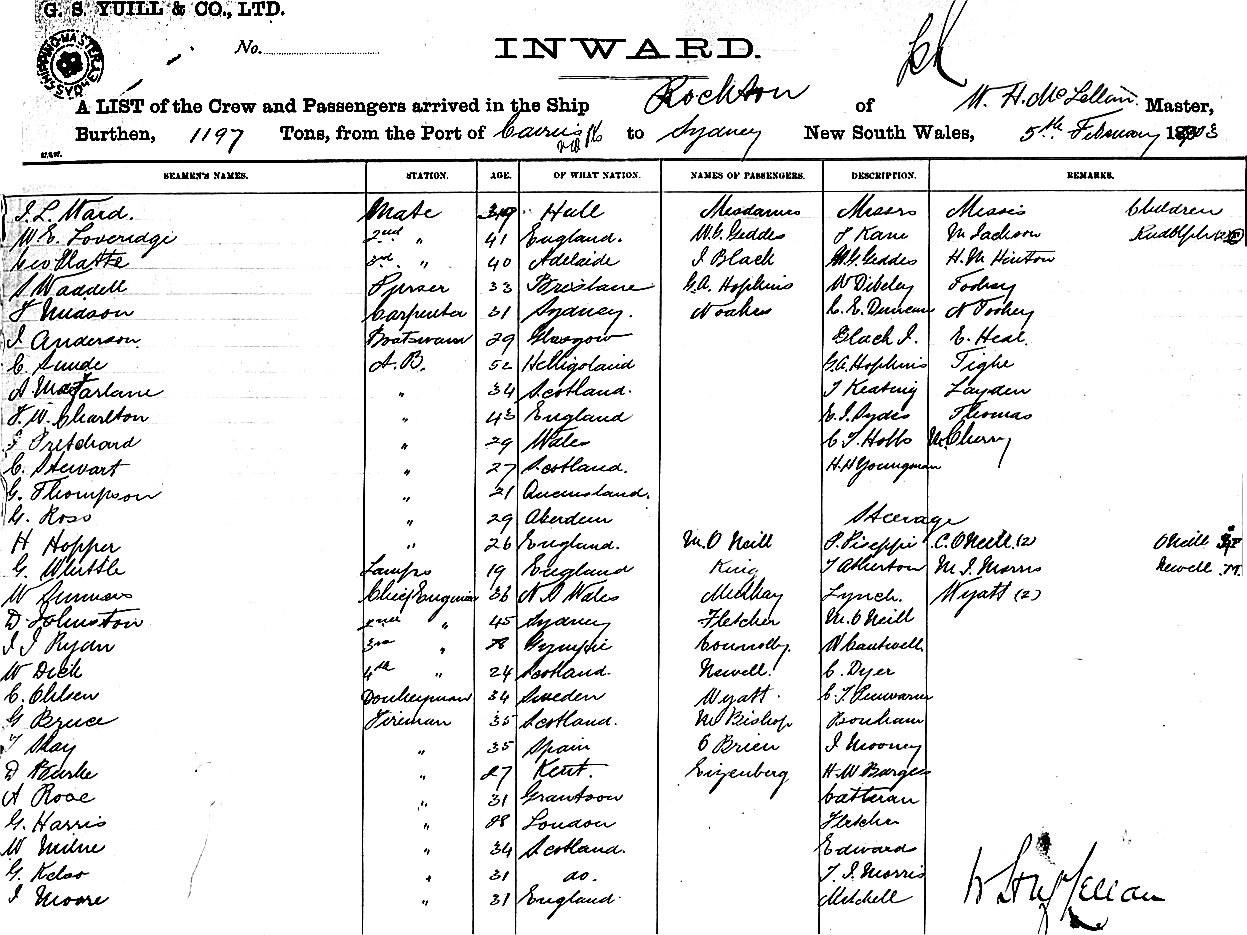 G. S. YUILL & CO., LTD.
SHIPPING MASTER SYDNEY
No.
INWARD.
A LIST of the Crew and Passengers arrived in the Ship Rockton of W. H. McLellan Master,
Burthen, 1197 Tons, from the Port of Cairns to Sydney New South Wales, 5th February 1903
SEAMEN'S NAMES. STATION. AGE. OF WHAT NATION. NAMES OF PASSENGERS. DESCRIPTION. REMARKS.
J. L. Ward. Mate 39 Hull Mesdames Messrs Misses Children
W. E. Loveridge 2nd " 41 England. W. G. Geddes T Kane M Jackson Rudolph
Geo Platte 3rd " 40 Adelaide J Black W. G. Geddes H. M Hinton
S Waddell Purser 33 Brisbane G. A. Hopkins W Dibley Foohey
F Hudson Carpenter 31 Sydney. Noakes C. E. Duncan N Foohey
J. Anderson Boatswain 29 Glasgow Black J. E. Heal.
C. Sunde A. B. 52 Helligoland G. A. Hopkins Tighe
A MacFarlane " 34 Scotland. T Keating Layden
F. W. Charlton " 43 England E. J. Sydes Thomas
Pritchard " 29 Wales C. T. Hobbs McCherry
C. Stewart " 27 Scotland. H. H Youngman
G. Thompson " 21 Queensland.
G. Ross " 29 Aberdeen Steerage
H Hopper " 26 England. M. O Neill P. Piseppi C. ONeill (2) ONeill
G. Whittle Lamps 19 England King T Atherton M J. Morris Newell M.
W Summers Chief Engineer 36 N. S Wales Lynch. Wyatt (2)
D Johnston 2nd " 45 Sydney Fletcher M. O Neill
J. J Ryan 3rd " 28 Gympie Connolly. W Cantwell
W Dick 4th " 24 Scotland. Newell. C. Dyer
C. Ohlsen Donkeyman 34 Sweden Wyatt.
G Bruce Fireman 35 Scotland. M Bishop Bonham
T Shay " 35 Spain O Brien J Mooney
D Burke " 27 Kent. Eizenberg H. W Barges
A Rose " 31 Grantoon Catteran
G. Harris " 28 London Fletcher
W Milne " 34 Scotland. Edwards
G. Kelso " 31 do. T. J. Morris
J Moore " 31 England Mitchell
W H McLellan